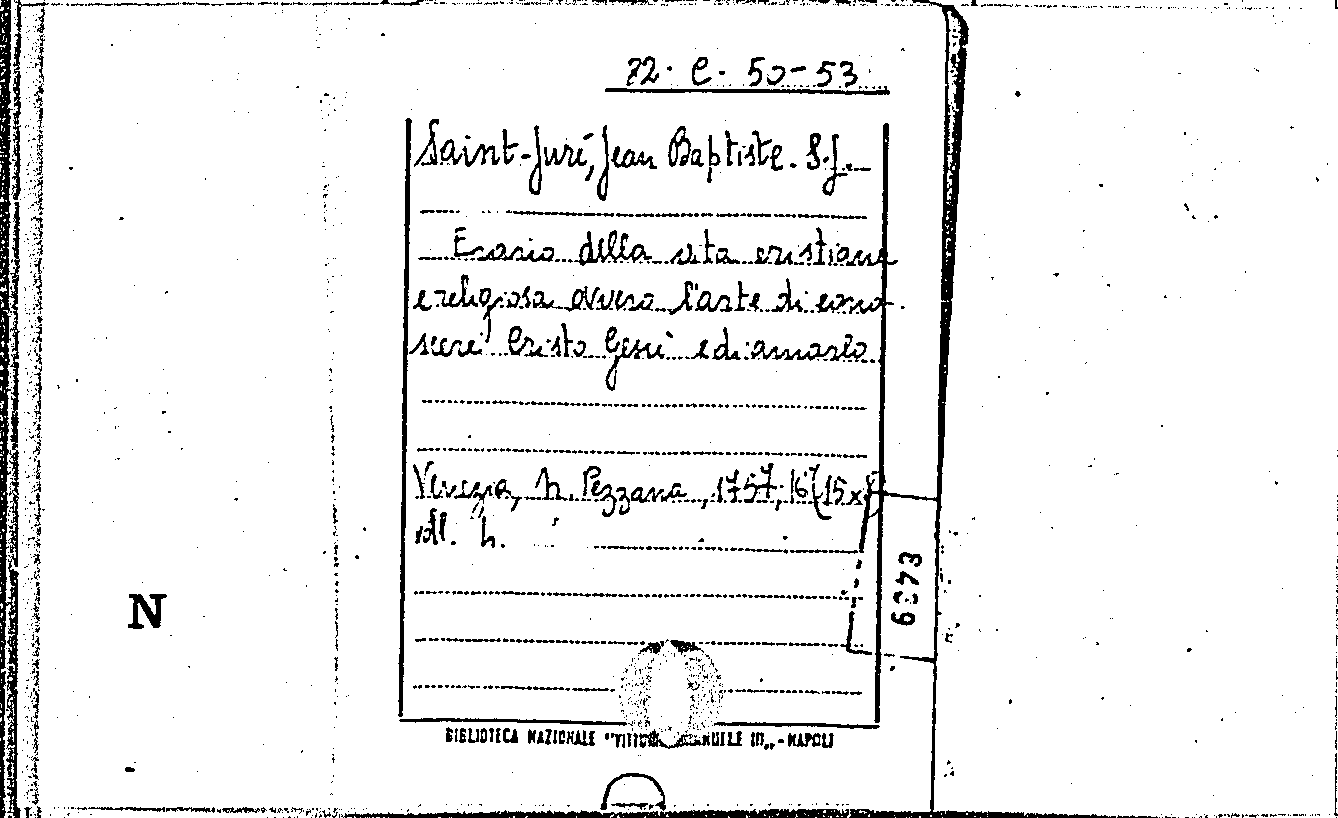 72. C. 50-53.
Saint-Juré, Jean Baptiste. S.J.
Erario della vita cristiana
e religiosa ovvero l'arte di cono-
scere Cristo Gesù e di amarlo
Venezia, N. Pezzana, 1757, 16° (15x8)
voll. 4.
N
BIBLIOTECA NAZIONALE "VITTORIO EMANUELE III" - NAPOLI